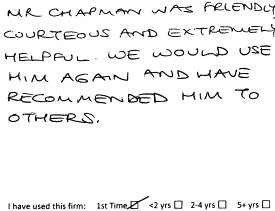 MR CHAPMAN WAS FRIENDLY
COURTEOUS AND EXTREMELY
HELPFUL. WE WOULD USE
HIM AGAIN AND HAVE
RECOMMENDED HIM TO
OTHERS.
I have used this firm: 1st Time ☑ <2 yrs ☐ 2-4 yrs ☐ 5+ yrs ☐